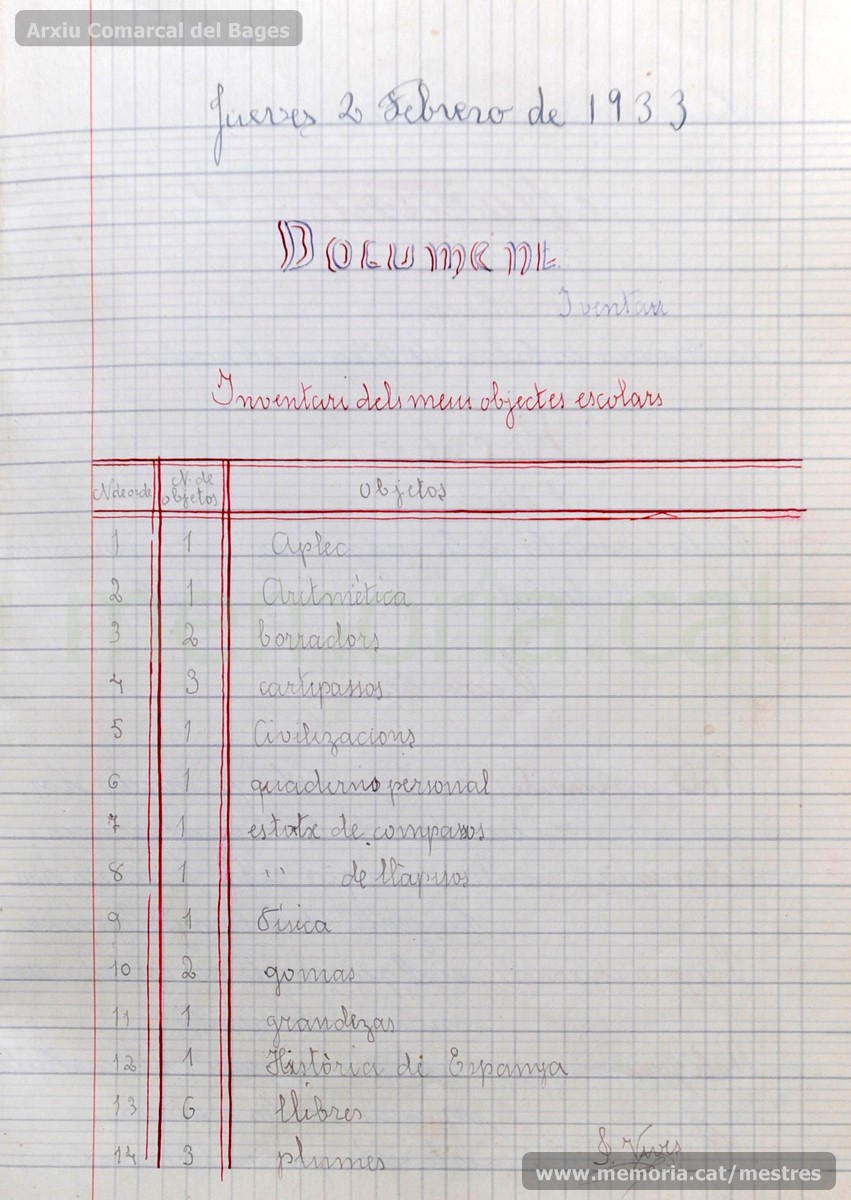 Arxiu Comarcal del Bages
Jueves 2 Febrero de 1933
Document
Iventari
Inventari dels meus objectes escolars
N de orde N. de objetos Objetos
1 1 Aplec
2 1 Aritmética
3 2 borradors
4 3 cartipassos
5 1 Civilizacions
6 1 quaderno personal
7 1 estotx de compassos
8 1 " de llàpisos
9 1 Física
10 2 gomas
11 1 grandezas
12 1 Història de Espanya
13 6 llibres
14 3 plumes
S. Vives
www.memoria.cat/mestres
memoria.cat